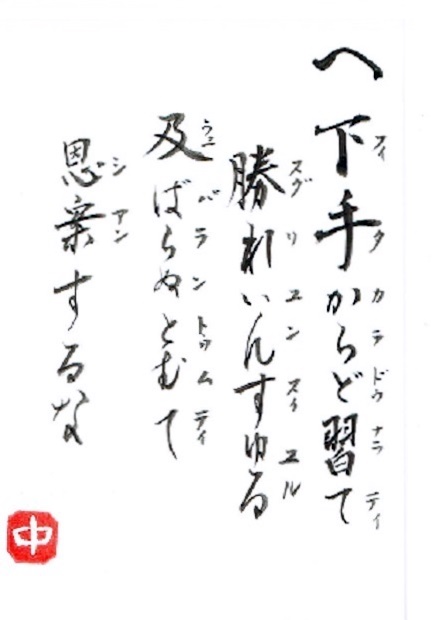 へ下手からど習て
フィタカラドゥナラティ
勝れいんすゆる
スグリユンスィユル
及ばらぬとむて
ウユバラントゥムティ
思案するな
シアン
中